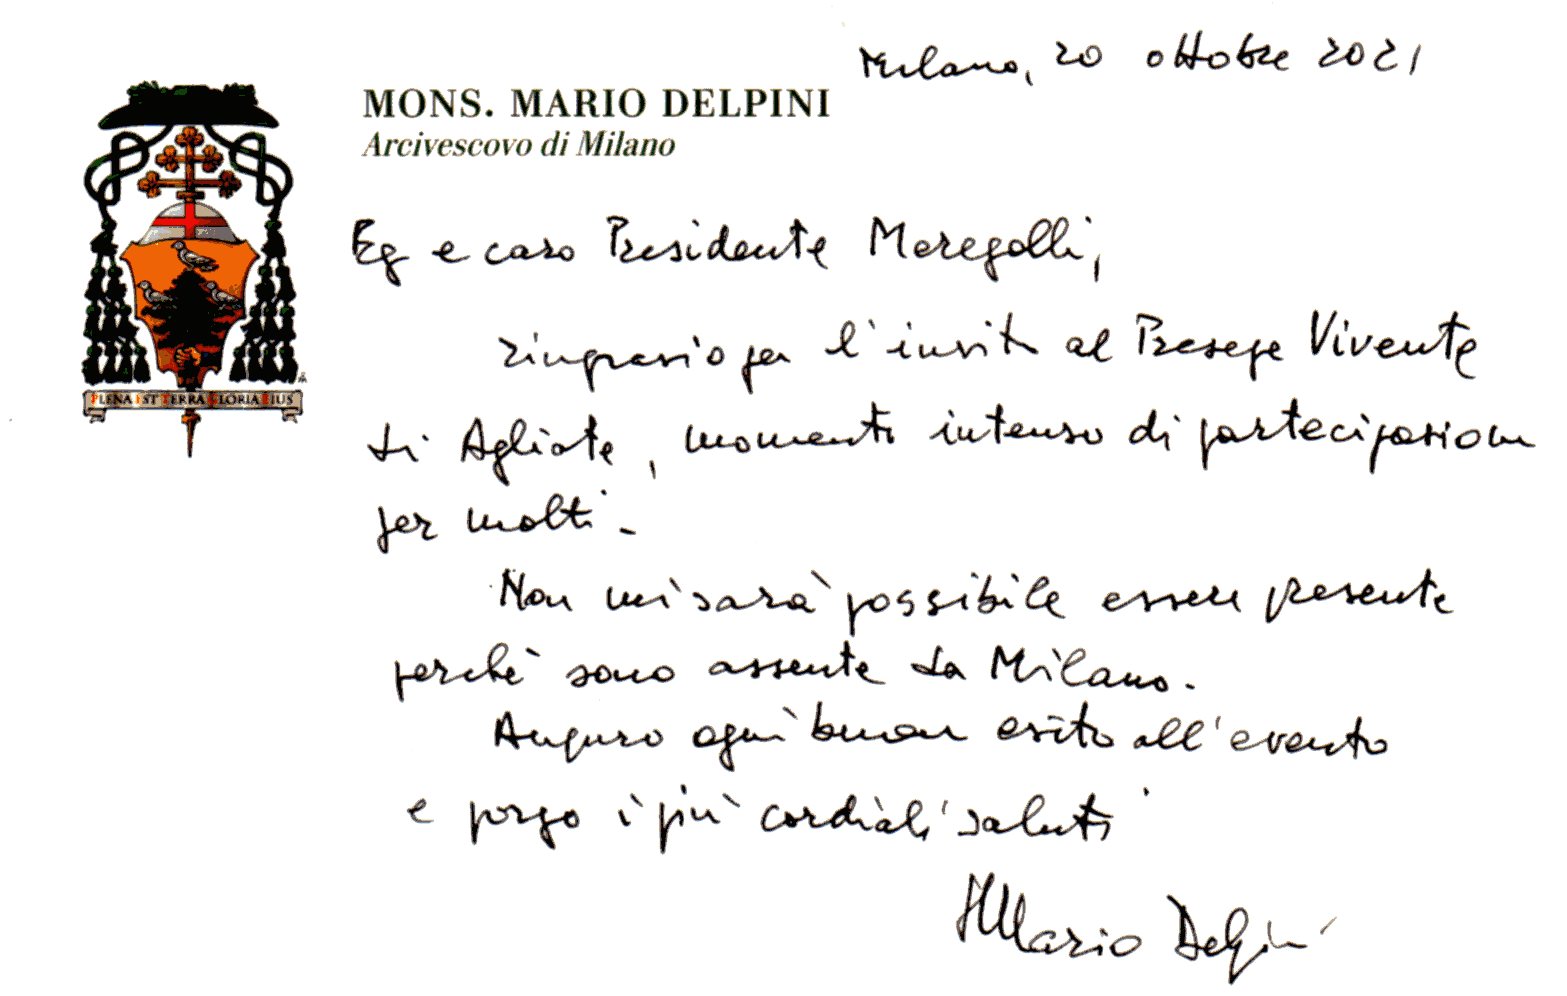 Milano, 20 ottobre 2021
MONS. MARIO DELPINI
Arcivescovo di Milano
Eg e caro Presidente Meregalli,
ringrazio per l'invito al Presepe Vivente
di Agliate, momento intenso di partecipazione
per molti.
Non mi sarà possibile essere presente
perchè sono assente da Milano.
Auguro ogni buon esito all'evento
e porgo i più cordiali saluti
PLENA EST TERRA GLORIA EIUS
+ Mario Delpini